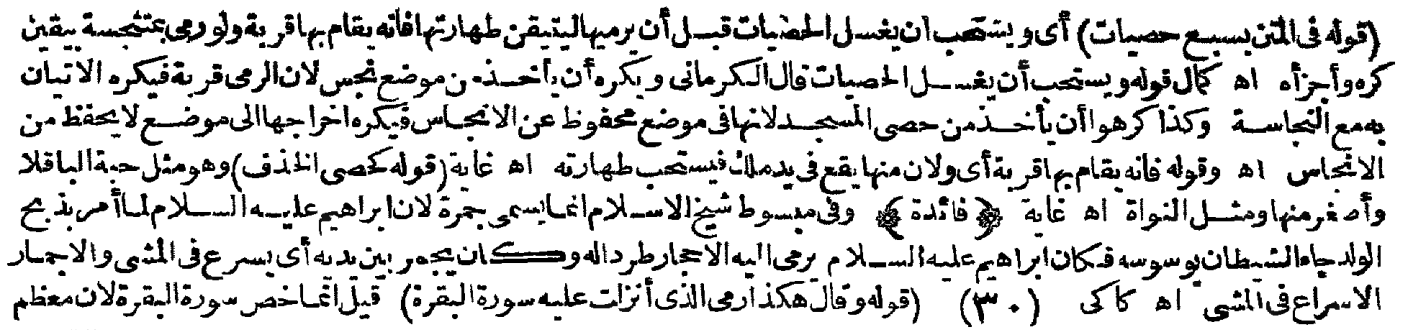 (قوله في المتن بسبع حصيات) أى ويستحب أن يغسل الحصيات قبل أن يرميها ليتيقن طهارتها فانه يقام بها قربة ولو رمى بمتنجسة بيقين
كره وأجزأه اه كمال قوله ويستحب أن يغسل الحصيات قال الكرمانى ويكره أن يأخذ من موضع نجس لان الرمى قربة فيكره الاتيان
به مع النجاسة وكذا كرهوا أن يأخذ من حصى المسجد لانها فى موضع محفوظ عن الانجاس فيكره اخراجها الى موضع لا يحفظ من
الانجاس اه وقوله فانه يقام بها قربة أى ولان منها يقع فى يد ملك فيستحب طهارته اه غاية (قوله كحصى الخذف) وهو مثل حبة الباقلا
وأصغر منها ومثل النواة اه غاية ﴿ فائدة ﴾ وفى مبسوط شيخ الاسلام انما يسمى جمرة لان ابراهيم عليه السلام لما أمر بذبح
الولد جاء الشيطان يوسوسه فكان ابراهيم عليه السلام يرمى اليه الاحجار طردا له وكان يجمر بين يديه أى يسرع فى المشى والاجمار
الاسراع فى المشى اه كاكى (٣٠) (قوله وقال هكذا رمى الذى أنزلت عليه سورة البقرة) قيل انما خصر سورة البقرة لان معظم